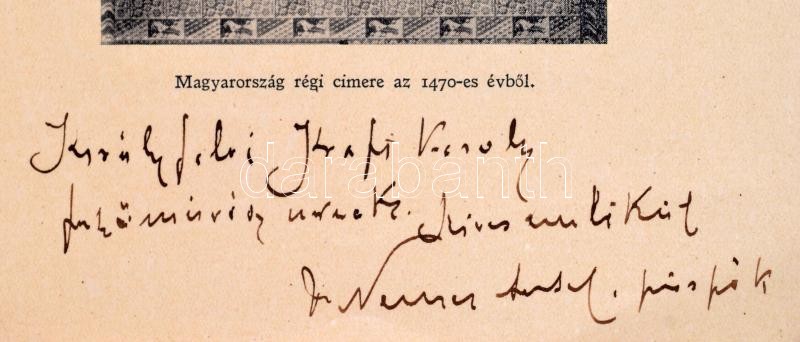 Magyarország régi címere az 1470-es évből.
Királyfalvi Kraft Károly
festőművész úrnak. Szíves emlékül
Dr Nemes Antal. püspök
darabanth